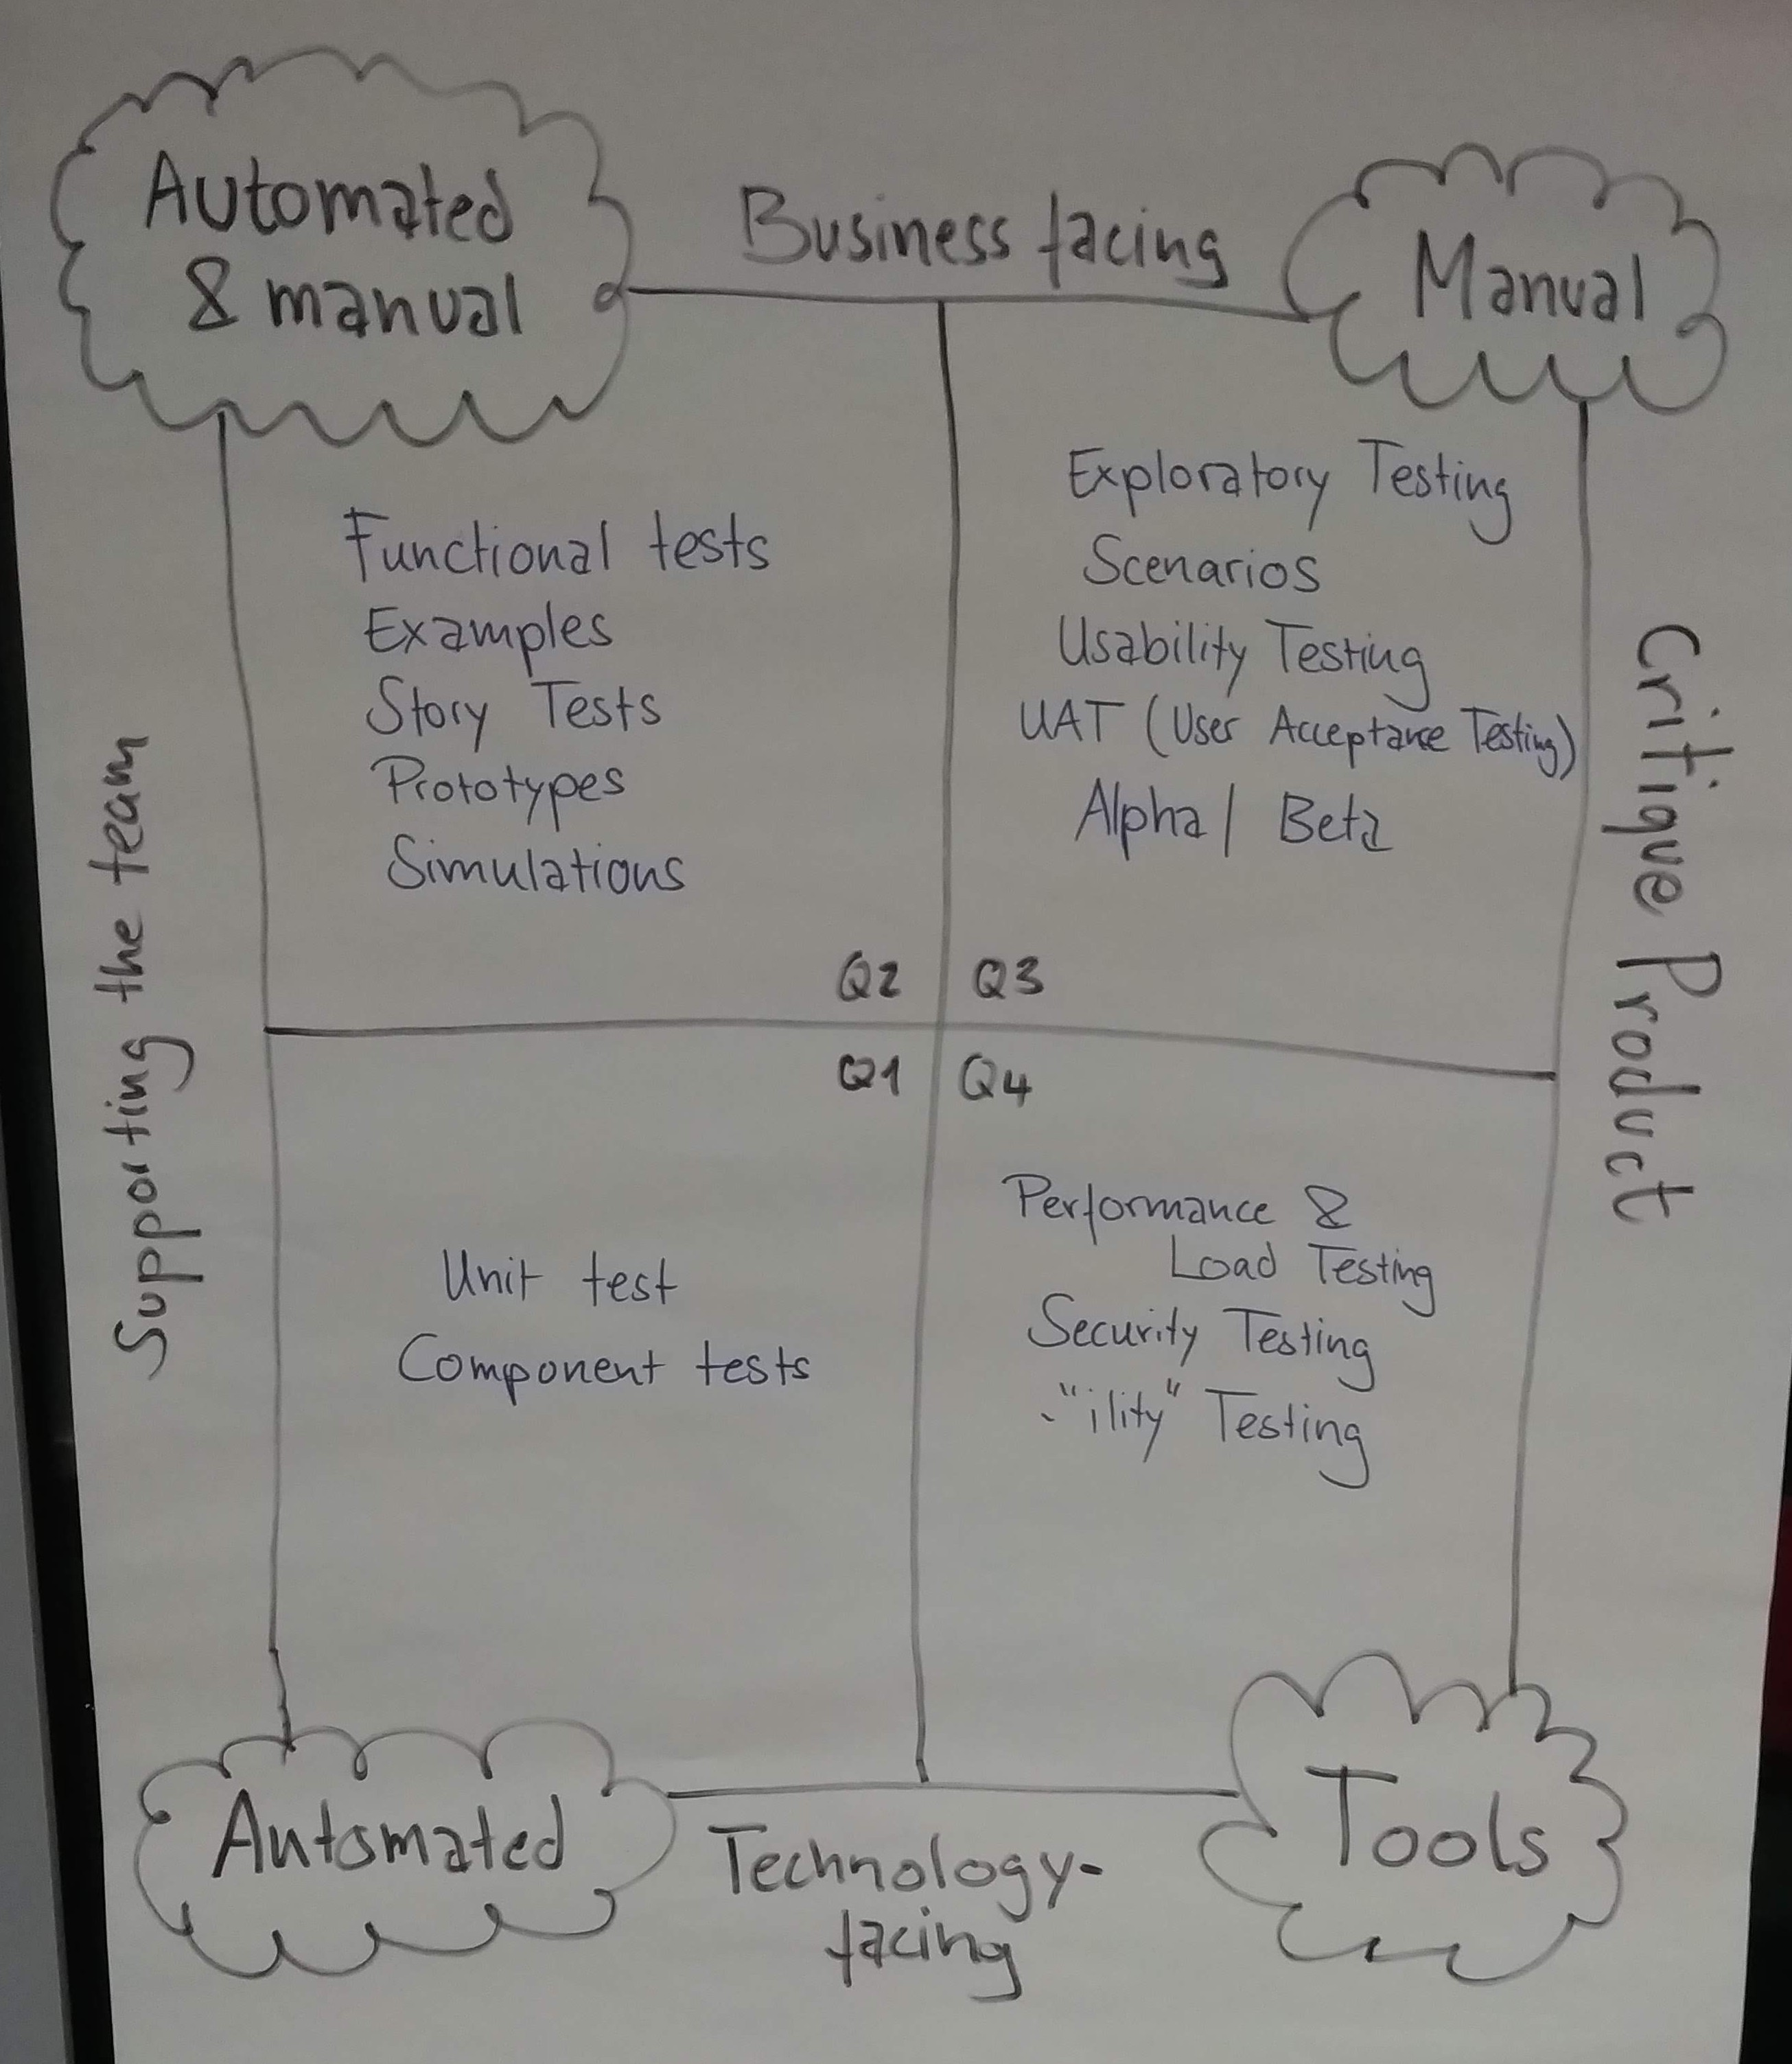 Automated
& manual
Business facing
Manual
Functional tests
Examples
Story Tests
Prototypes
Simulations
Exploratory Testing
Scenarios
Usability Testing
UAT (User Acceptance Testing)
Alpha/ Beta
Supporting the team
Critique Product
Q2
Q3
Q1
Q4
Unit test
Component tests
Performance &
Load Testing
Security Testing
-"ility" Testing
Automated
Technology-
facing
Tools